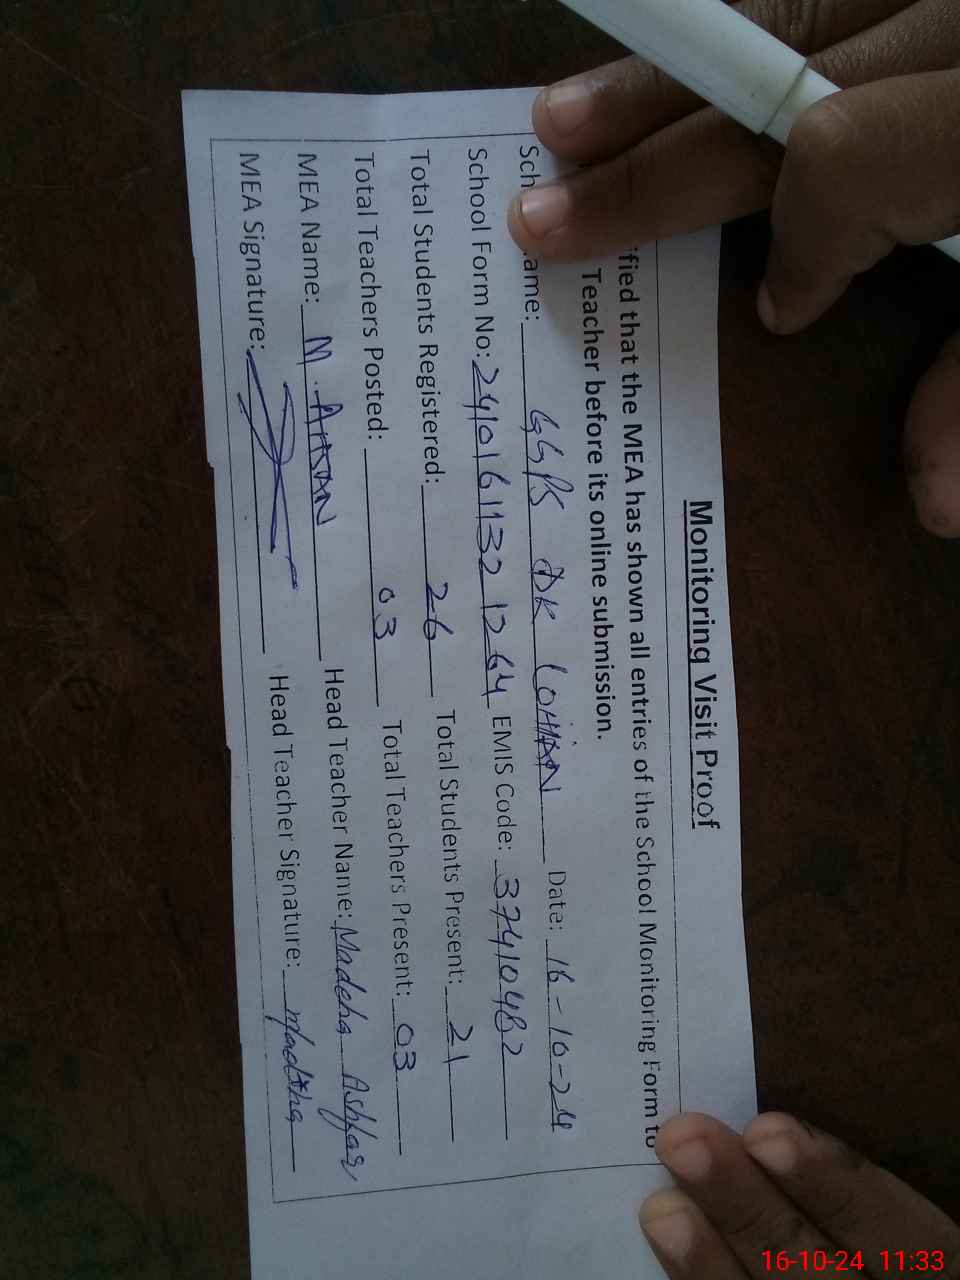 Monitoring Visit Proof
fied that the MEA has shown all entries of the School Monitoring Form to
Teacher before its online submission.
Sch ame: GGPS DK LOHIAN Date: 16-10-24
School Form No: 2410161132 1264 EMIS Code: 37410482
Total Students Registered: 26 Total Students Present: 21
Total Teachers Posted: 03 Total Teachers Present: 03
MEA Name: M. Head Teacher Name: Madeha Ashfaq
MEA Signature: Head Teacher Signature: Madiha
16-10-24 11:33